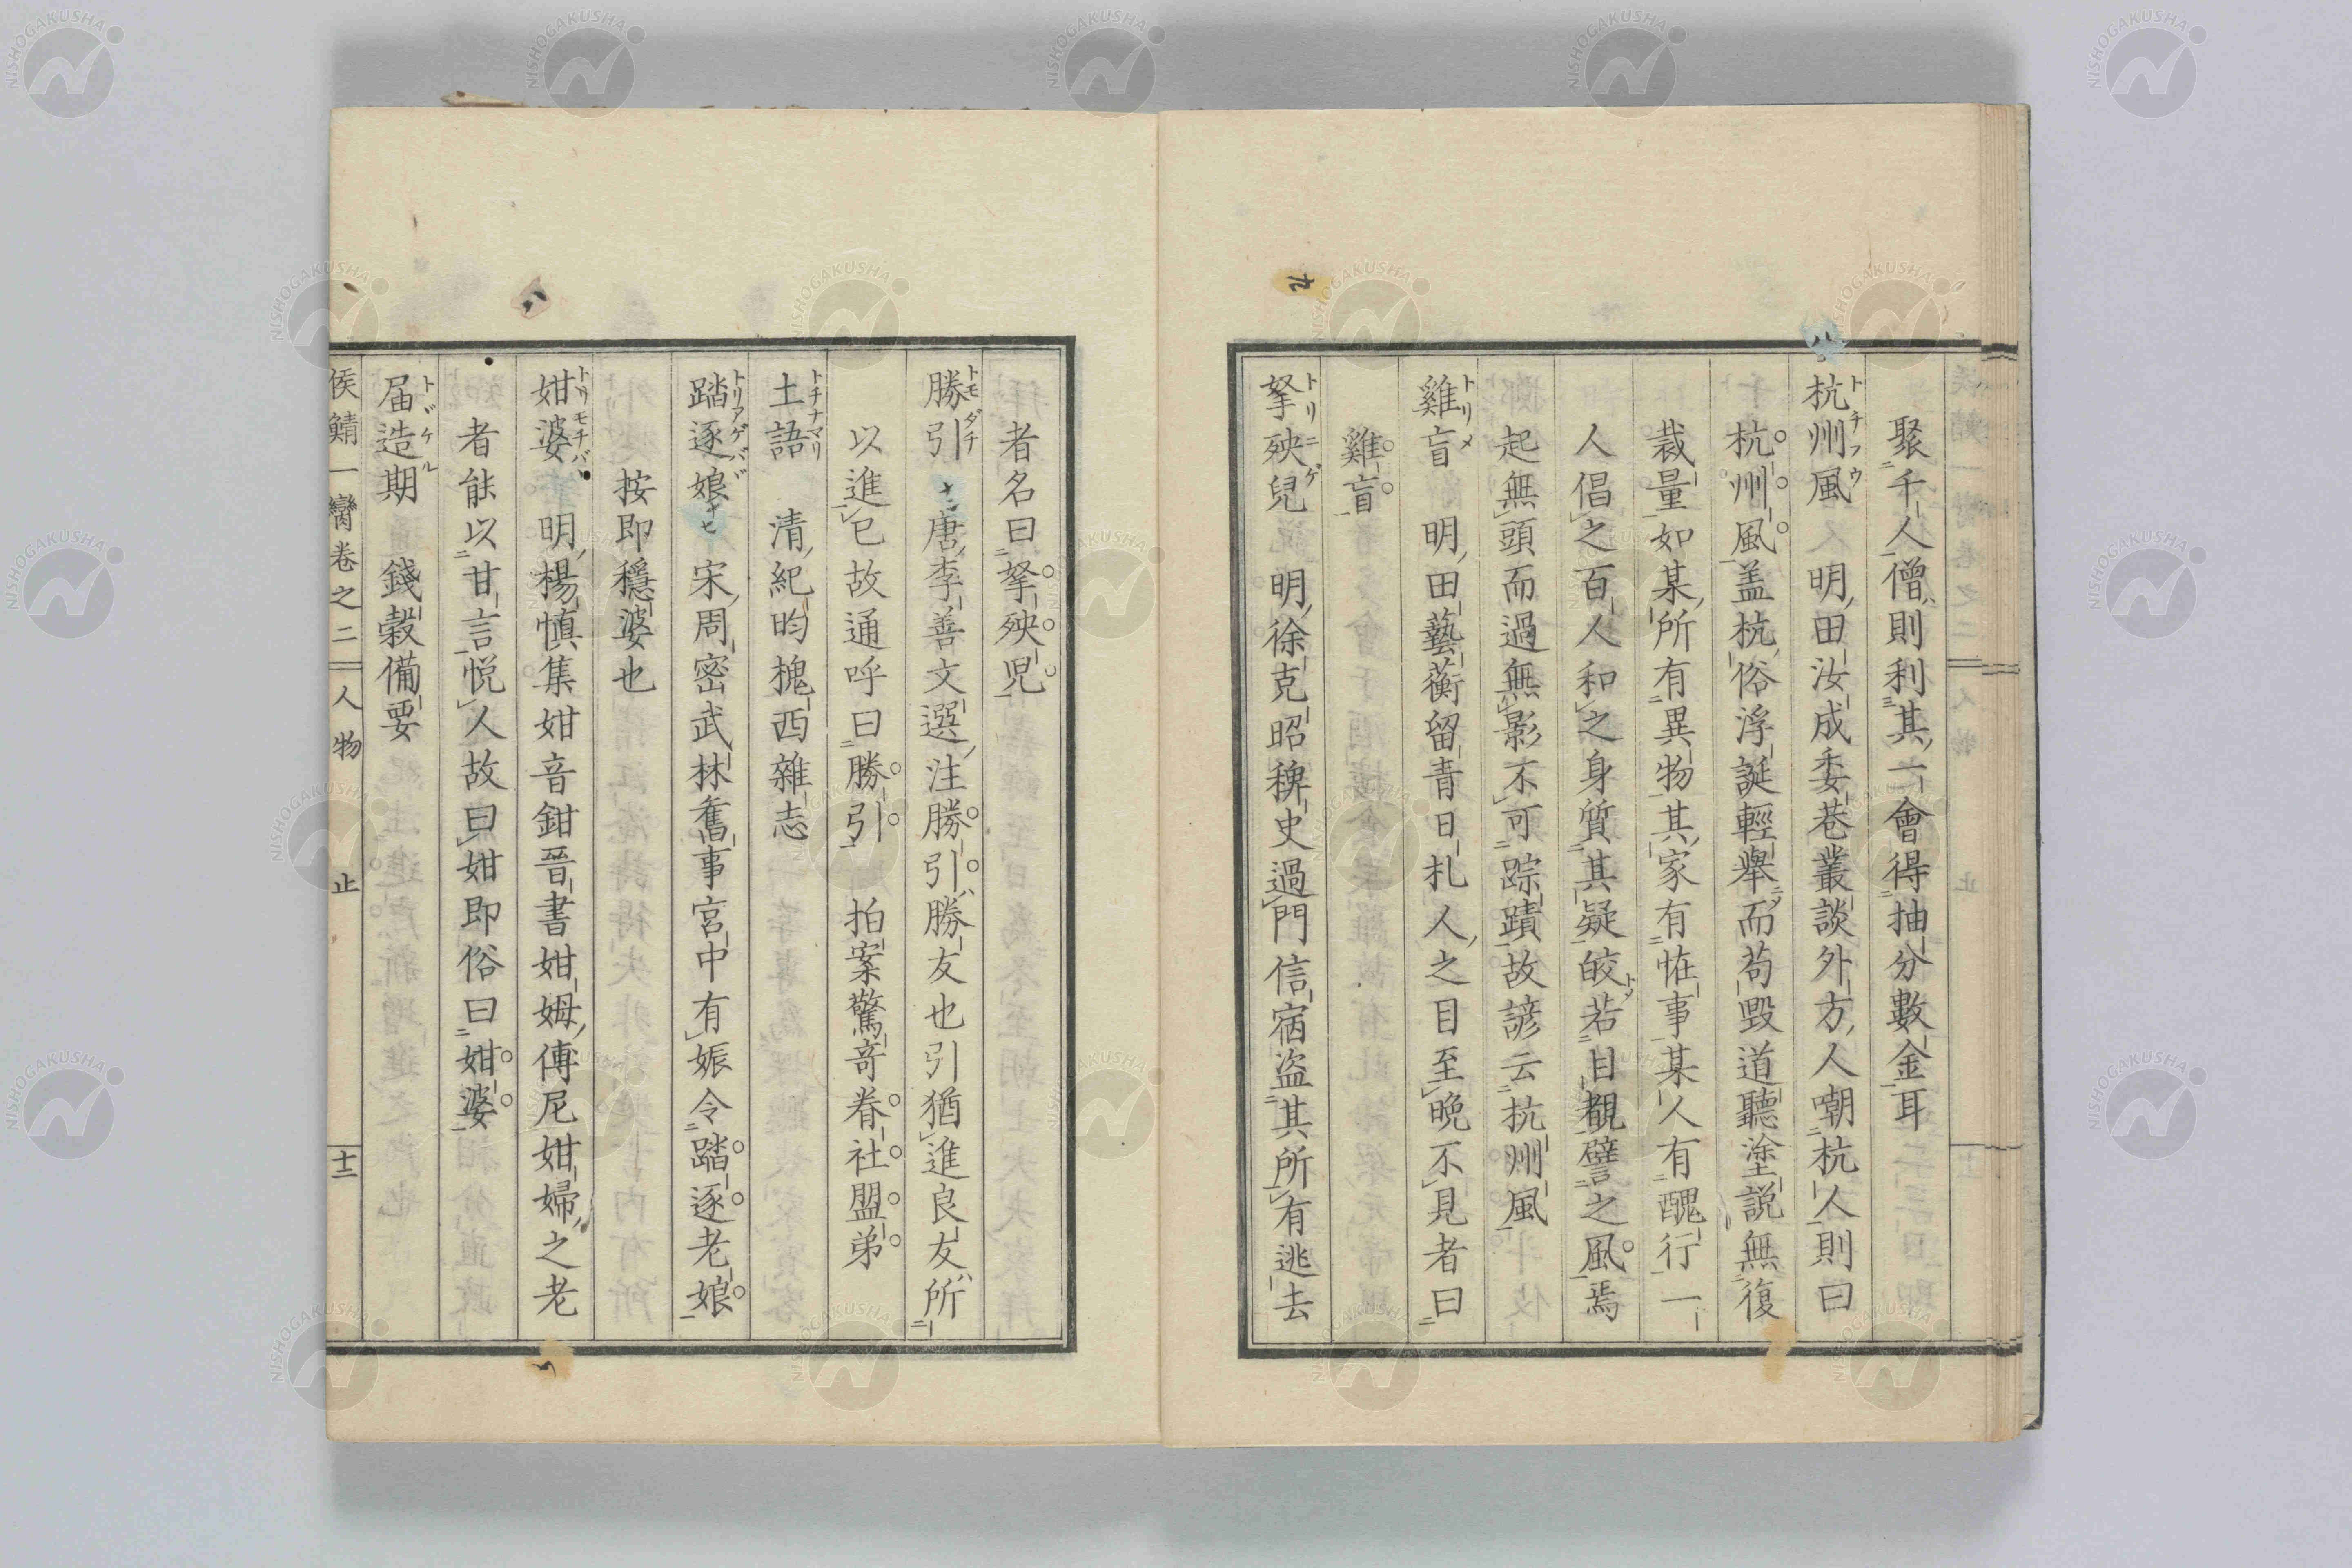 聚千人僧則利其一會得抽分數金耳
杭州風 明田汝成委巷叢談外方人嘲杭人則曰
トチフウ
杭州風盖杭俗浮誕輕舉而苟毀道聽塗説無復
裁量如某所有異物某家有恠事某人有醜行一
人倡之百人和之身質其疑皎若目覩譬之風焉
起無頭而過無影不可踪蹟故諺云杭州風
雞盲 明田藝蘅留青日札人之目至晩不見者曰
トリメ
雞盲
拏殃兒 明徐克昭稗史過門信宿盗其所有逃去
トリニゲ
者名曰拏殃児
勝引 唐李善文選注勝引ハ勝友也引猶進良友ハ所
トモダチ
十二
以進已故通呼曰勝引 拍案驚奇眷社盟弟
土語 清紀昀槐西雜志
トチナマリ
踏逐娘 宋周密武林舊事宮中有娠令踏逐老娘
トリアゲバヾ
十七
按即穏婆也
姏婆 明楊慎集姏音鉗晋書姏姆傅尼姏婦之老
トリモチバヾ
者能以甘言悦人故曰姏即俗曰姏婆
届造期 錢穀備要
トヾケル
侯鯖一臠巻之二 人物 止 十二
八
九
八
NISHOGAKUSHA